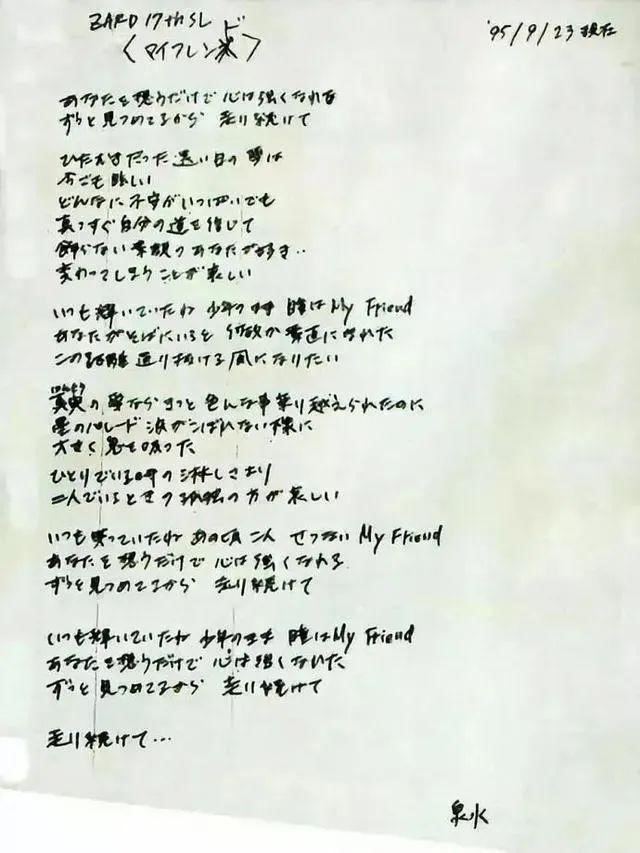 ZARD 17th SL
'95/9/23 現在
〈マイフレンド〉
あなたを想うだけで 心は強くなれる
ずっと見つめてるから 走り続けて
ひたむきだった 遠い日の夢は
今でも眩しい
どんなに不安がいっぱいでも
真っすぐ自分の道を信じて
飾らない素顔の あなたが好き..
変わってしまうことが 哀しい
いつも輝いていたね 少年のまま 瞳はMy Friend
あなたがそばにいると 何故か 素直になれた
この距離 通り抜ける 風になりたい
真実の夢なら きっと 色んな事 乗り越えられたのに
星のパレード 涙がこぼれない様に
大きく息を吸った
ひとりでいる時の淋しさより
二人でいるときの孤独の方が哀しい
いつも笑っていたね あの頃 二人 せつない My Friend
あなたを想うだけで 心は強くなれる
ずっと見つめてるから 走り続けて
いつも輝いていたね 少年のまま 瞳はMy Friend
あなたを想うだけで 心は強くなれた
ずっと見つめてるから 走り続けて
走り続けて…
泉水